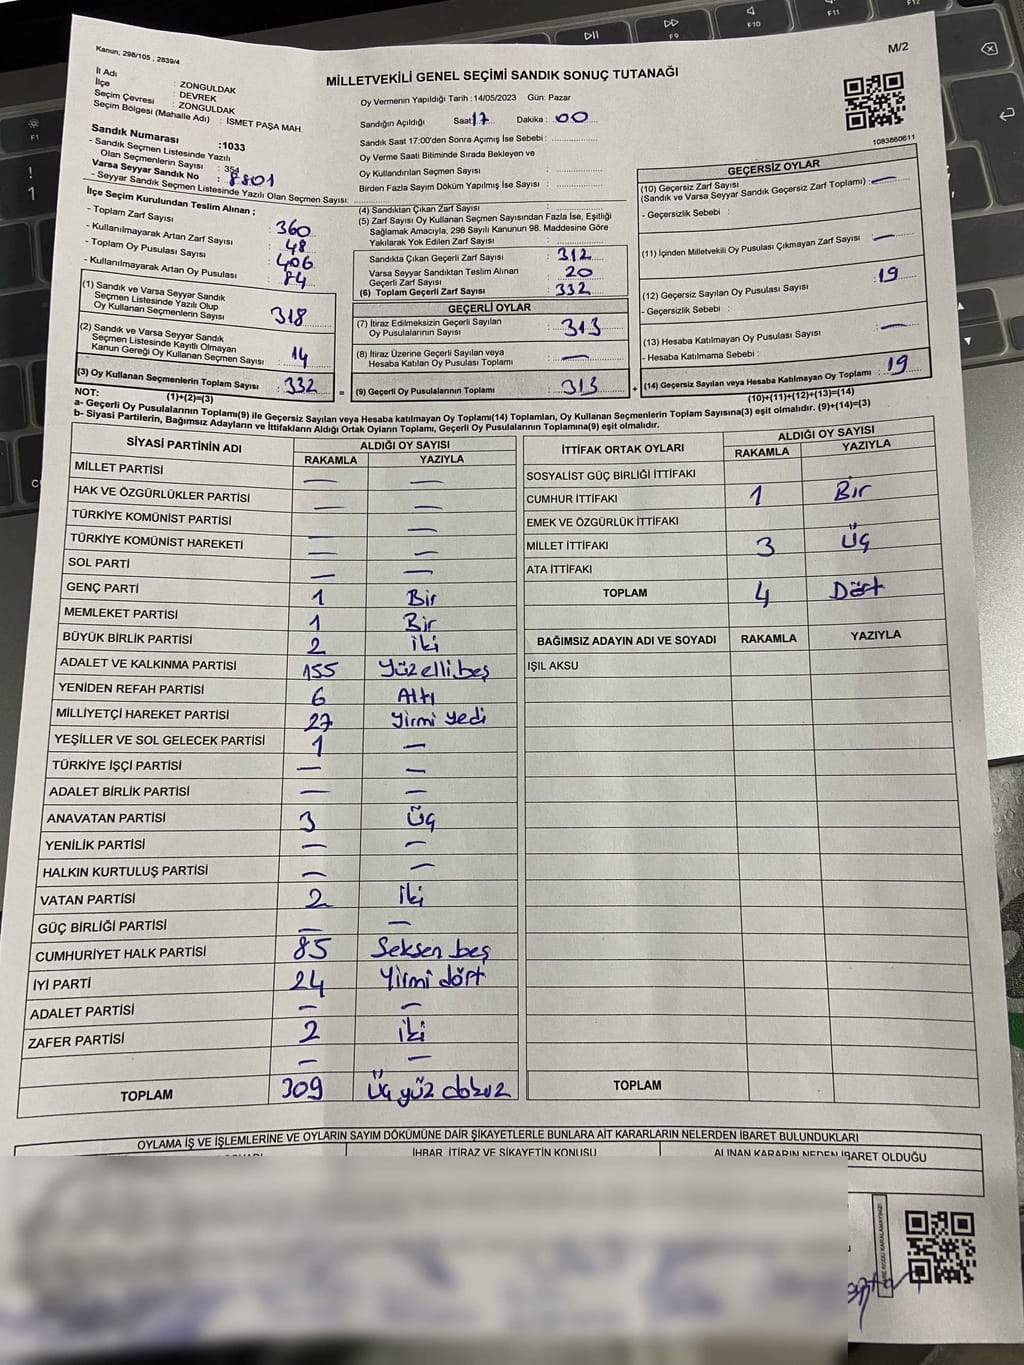 Kanun; 298/105 , 2839/4
M/2
MİLLETVEKİLİ GENEL SEÇİMİ SANDIK SONUÇ TUTANAĞI
İl Adı : ZONGULDAK
İlçe : DEVREK
Seçim Çevresi : ZONGULDAK
Seçim Bölgesi (Mahalle Adı) : İSMET PAŞA MAH.
Sandık Numarası :1033
- Sandık Seçmen Listesinde Yazılı
Olan Seçmenlerin Sayısı : 354
Varsa Seyyar Sandık No : 8801
- Seyyar Sandık Seçmen Listesinde Yazılı Olan Seçmen Sayısı:
Oy Vermenin Yapıldığı Tarih :14/05/2023 Gün: Pazar
Sandığın Açıldığı Saat 17 Dakika : 00
Sandık Saat 17:00'den Sonra Açımış İse Sebebi :
Oy Verme Saati Bitiminde Sırada Bekleyen ve
Oy Kullandırılan Seçmen Sayısı :
Birden Fazla Sayım Döküm Yapılmış İse Sayısı :
1083860611
İlçe Seçim Kurulundan Teslim Alınan ;
- Toplam Zarf Sayısı : 360
- Kullanılmayarak Artan Zarf Sayısı : 48
- Toplam Oy Pusulası Sayısı : 406
- Kullanılmayarak Artan Oy Pusulası : 84
(1) Sandık ve Varsa Seyyar Sandık
Seçmen Listesinde Yazılı Olup
Oy Kullanan Seçmenlerin Sayısı : 318
(2) Sandık ve Varsa Seyyar Sandık
Seçmen Listesinde Kayıtlı Olmayan
Kanun Gereği Oy Kullanan Seçmen Sayısı : 14
(3) Oy Kullanan Seçmenlerin Toplam Sayısı : 332
(1)+(2)=(3)
(4) Sandıktan Çıkan Zarf Sayısı :
(5) Zarf Sayısı Oy Kullanan Seçmen Sayısından Fazla İse, Eşitliği
Sağlamak Amacıyla, 298 Sayılı Kanunun 98. Maddesine Göre
Yakılarak Yok Edilen Zarf Sayısı :
Sandıkta Çıkan Geçerli Zarf Sayısı : 312
Varsa Seyyar Sandıktan Teslim Alınan
Geçerli Zarf Sayısı : 20
(6) Toplam Geçerli Zarf Sayısı : 332
GEÇERLİ OYLAR
(7) İtiraz Edilmeksizin Geçerli Sayılan
Oy Pusulalarının Sayısı : 313
(8) İtiraz Üzerine Geçerli Sayılan veya
Hesaba Katılan Oy Pusulası Toplamı : —
= (9) Geçerli Oy Pusulalarının Toplamı : 313 +
GEÇERSİZ OYLAR
(10) Geçersiz Zarf Sayısı
(Sandık ve Varsa Seyyar Sandık Geçersiz Zarf Toplamı) : —
- Geçersizlik Sebebi :
(11) İçinden Milletvekili Oy Pusulası Çıkmayan Zarf Sayısı : —
(12) Geçersiz Sayılan Oy Pusulası Sayısı : 19
- Geçersizlik Sebebi :
(13) Hesaba Katılmayan Oy Pusulası Sayısı : —
- Hesaba Katılmama Sebebi :
(14) Geçersiz Sayılan veya Hesaba Katılmayan Oy Toplamı : 19
(10)+(11)+(12)+(13)=(14)
NOT:
a- Geçerli Oy Pusulasının Toplamı(9) ile Geçersiz Sayılan veya Hesaba katılmayan Oy Toplamı(14) Toplamları, Oy Kullanan Seçmenlerin Toplam Sayısına(3) eşit olmalıdır. (9)+(14)=(3)
b- Siyasi Partilerin, Bağımsız Adayların ve İttifakların Aldığı Ortak Oyların Toplamı, Geçerli Oy Pusulalarının Toplamına(9) eşit olmalıdır.
SİYASİ PARTİNİN ADI ALDIĞI OY SAYISI
RAKAMLA YAZIYLA
MİLLET PARTİSİ — —
HAK VE ÖZGÜRLÜKLER PARTİSİ — —
TÜRKİYE KOMÜNİST PARTİSİ —
TÜRKİYE KOMÜNİST HAREKETİ — —
SOL PARTİ — —
GENÇ PARTİ 1 Bir
MEMLEKET PARTİSİ 1 Bir
BÜYÜK BİRLİK PARTİSİ 2 iki
ADALET VE KALKINMA PARTİSİ 155 Yüzelli beş
YENİDEN REFAH PARTİSİ 6 Altı
MİLLİYETÇİ HAREKET PARTİSİ 27 Yirmi yedi
YEŞİLLER VE SOL GELECEK PARTİSİ 1 —
TÜRKİYE İŞÇİ PARTİSİ — —
ADALET BİRLİK PARTİSİ — —
ANAVATAN PARTİSİ 3 Üç
YENİLİK PARTİSİ — —
HALKIN KURTULUŞ PARTİSİ — —
VATAN PARTİSİ 2 iki
GÜÇ BİRLİĞİ PARTİSİ — —
CUMHURİYET HALK PARTİSİ 85 Seksen beş
İYİ PARTİ 24 Yirmi dört
ADALET PARTİSİ — —
ZAFER PARTİSİ 2 iki
— —
TOPLAM 309 Üç yüz dokuz
İTTİFAK ORTAK OYLARI ALDIĞI OY SAYISI
RAKAMLA YAZIYLA
SOSYALİST GÜÇ BİRLİĞİ İTTİFAKI
CUMHUR İTTİFAKI 1 Bir
EMEK VE ÖZGÜRLÜK İTTİFAKI
MİLLET İTTİFAKI 3 Üç
ATA İTTİFAKI
TOPLAM 4 Dört
BAĞIMSIZ ADAYIN ADI VE SOYADI RAKAMLA YAZIYLA
IŞIL AKSU
TOPLAM
OYLAMA İŞ VE İŞLEMLERİNE VE OYLARIN SAYIM DÖKÜMÜNE DAİR ŞİKAYETLERLE BUNLARA AİT KARARLARIN NELERDEN İBARET BULUNDUKLARI
İHBAR, İTİRAZ VE ŞİKAYETİN KONUSU
ALINAN KARARIN NEDEN İBARET OLDUĞU